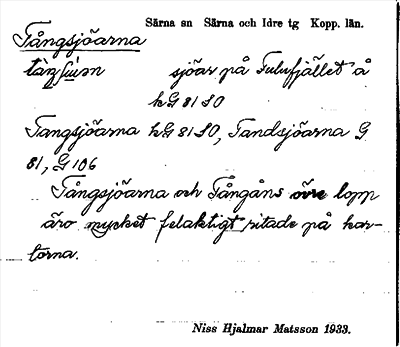 Särna sn Särna och Idre tg Kopp. län.
Tångsjöarna
sjöar på Fulufjället å
kG 81 SO
Tangsjöarna kG 81 SO, Tandsjöarna G
81, G 106
Tångsjöarna och Tångåns övre lopp
äro mycket felaktigt ritade på kar-
torna.
Niss Hjalmar Matsson 1933.